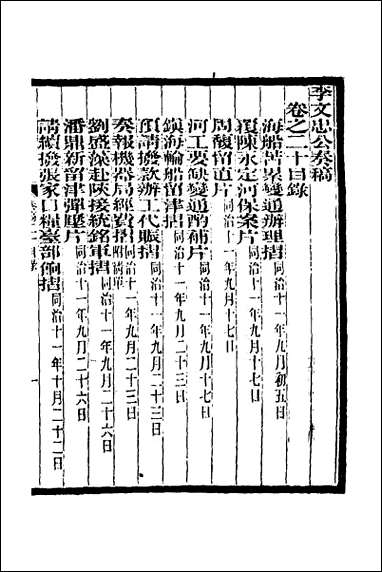 李文忠公奏稿
卷之二十目錄
海船苦累變通辦理摺同治十一年九月初五日
覆陳永定河保案片同治十一年九月十七日
周馥留直片同治十一年九月十七日
河工要缺變通酌補片同治十一年九月十七日
鎮海輪船留津摺同治十一年九月二十三日
預請撥款辦工代賑摺同治十一年九月二十三日
奏報機器局經費摺附清單同治十一年九月二十三日
劉盛藻赴陝接統銘軍摺同治十一年九月二十六日
潘鼎新留津彈壓片同治十一年九月二十六日
請續撥張家口糧臺部餉摺同治十一年十月二十二日